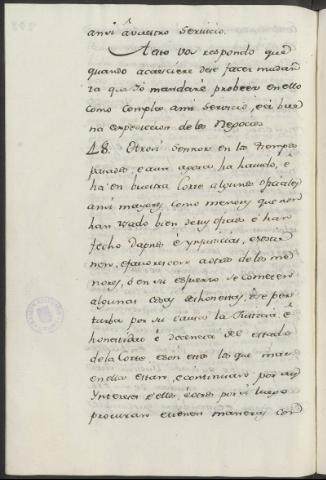 ansi a vuestro servicio.
A esto vos respondo que
quando acaesciere dese facer mudan
za que Yo mandaré probeer en ello
como comple a mi Servicio, é á bue
na expedicion de los Negocios
48. Otrosi Senor en los tiempos
pasados, e aun agora ha havido, é
ha en buestra Corte algunos oficiales
ansi mayores como menores que non
han usado bien de sus oficios é han
fecho dapnos é ynjusticias,
nen, e favorescen a otros de los me
nores, é en su esfuerzo se cometen
algunas cosas desonestas, é se per
turba por su causa la Justicia, é
honestidad é decencia del estado
de la Corte, e son estos los que mas
en ella estan, e continuan por sus
Ynterese e ellos, é otros por si luego
procuran e tienen maneras con